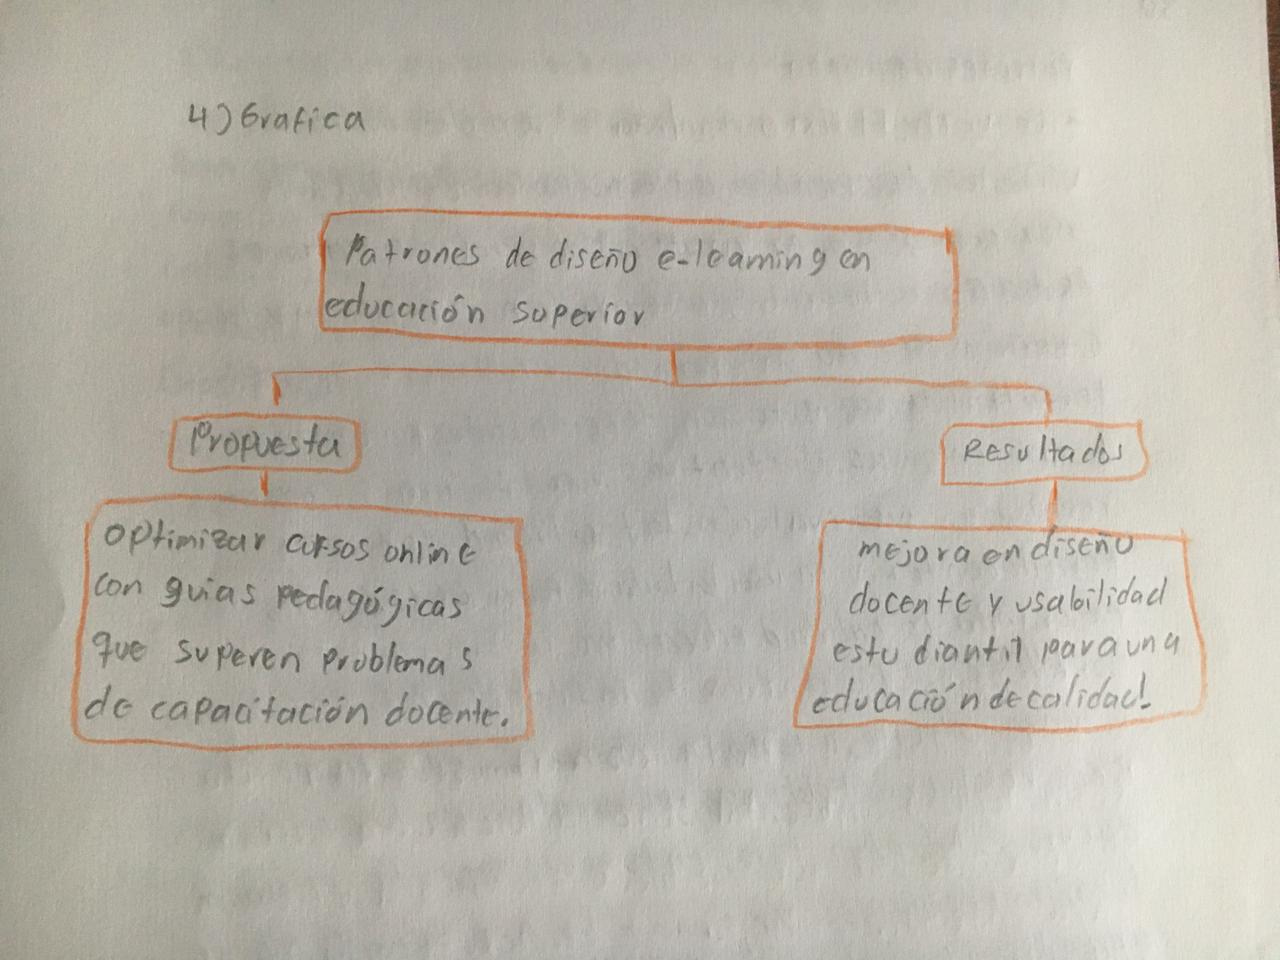 4) Grafica
Patrones de diseño e-learning en
educación superior
Propuesta
Resultados
optimizar cursos online
con guias pedagógicas
que superen problemas
de capacitación docente.
mejora en diseño
docente y usabilidad
estudiantil para una
educación de calidad.